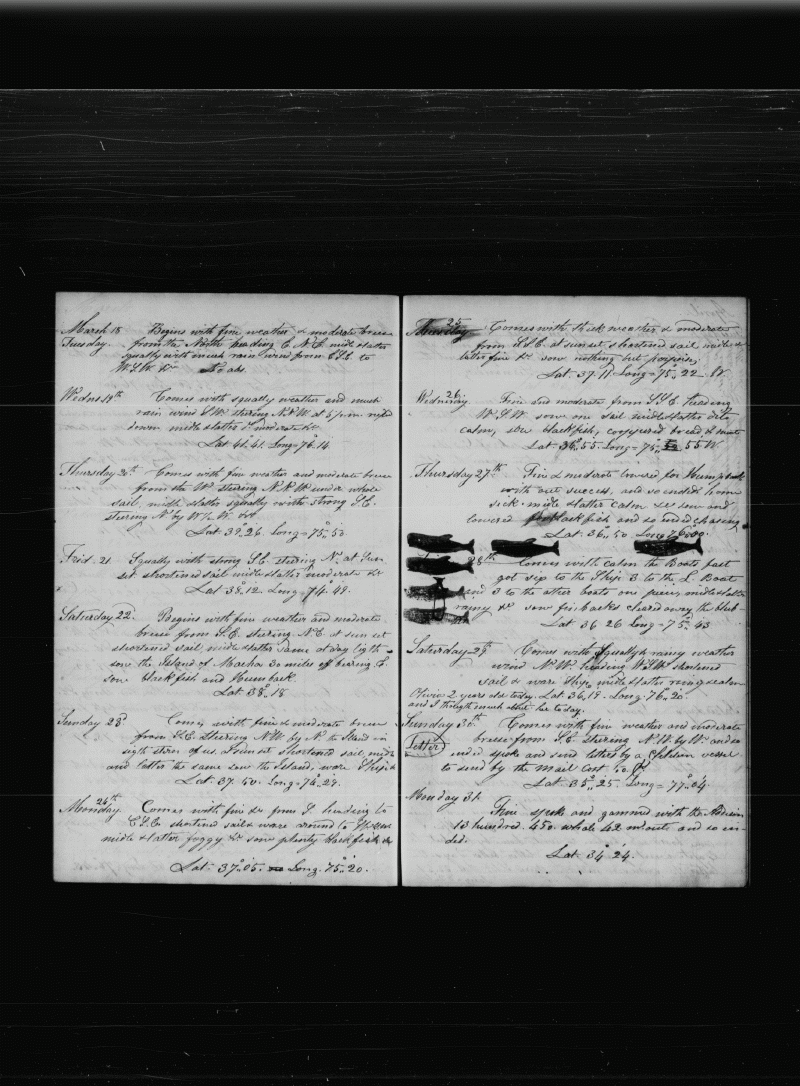 March 18 Begins with fine weather & moderate breeze
Tuesday. from the North heading E. N. E. midl & latter
squally with much rain wind from E.S.E. to
W.S.W. &c No obs.
Wednes. 19th Comes with squally weather and much
rain wind S.W. steering N. & W at 5 p.m.
down midle & latter moderate &c
Lat 41.41. Long= 76.14.
Thursday 20th Comes with fine weather and moderate breeze
from the W. steering N.N.W under whole
sail, midle & latter squally with strong S.E.
steering N. by W ½ W.
Lat 39.26. Long= 75.53
Frid. 21. Squally with strong S.E. steering N. at sun
set shortened sail midle & latter moderate &c
Lat 38.12. Long= 74.49.
Saturday 22. Begins with fine weather and moderate
breeze from S.E. steering N.E. at sun set
shortened sail, midle & latter same at day ligth
sow the Island of Macha 30 miles off bearing E.
sow blackfish and Humback.
Lat 38.18
Sunday 23d Comes with fine & moderate breeze
from S.E. Steering N.W. by N. the Island in
sigth stern of us. Sun set shortened sail, midle
and latter the same saw the Island, ware Ship &c
Lat. 37.50. Long= 74.29.
24th
Monday. Comes with fine &c from S. heading to
E.S.E shortened sail & ware around to
midle & latter foggy &c sow plenty blackfish &c
Lat. 37.05. Long. 75.20.
25
Tuesday Comes with thick weather & moderate
from S.S.E. at sunset shortened sail midle &
latter fine &c sow nothing but porpoises
Lat. 37.11. Long= 75.22 W.
26
Wednesday. Fine and moderate from S.S.E. heading
W.S.W sow one sail midle & latter
calm, saw blackfish, coppered bread & meat
Lat. 36.55. Long= 75. 55 W.
Thursday 27th Fine & moderate lowered for Humpback
with out success, and so ended. home
sick. midle & latter calm &c saw and
lowered for blackfish and so ended chasing
Lat. 36.50 Long 76.00.
28th Comes with calm the Boats fast
got six to the Ship 3 to the L. Boat
and 3 to the other boats one peace, midle & latter
rainy &c sow finbacks cleared away the blub-
Lat 36 26 Long= 75.43
Saturday 29. Comes with squally & rainy weather
wind N.W. heading W.S.W. shortened
sail & ware Ship, midle & latter rainy & calm
2 years old today. Lat. 36.19. Long. 76.20
and I thougth much about her to day.
Sunday 30th Comes with fine weather and moderate
Letter breeze from S.E. Steering N.W. by W. and so
ended spoke and send letters by a Chilean vessel
to send by the Mail Cost
Lat. 35.25 Long= 77.04.
Monday 31.
Fine spoke and gammed with the Addison
13 hundred. 450 whale 42 mounts and so en-
ded.
Lat. 34.24.